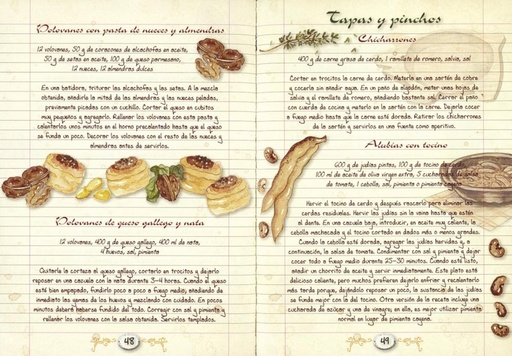 Volovanes con pasta de nueces y almendras
12 volovanes, 50 g de corazones de alcachofas en aceite,
50 g de setas en aceite, 100 g de queso parmesano,
12 nueces, 12 almendras dulces
En una batidora, triturar las alcachofas y las setas. A la mezcla
obtenida, añadirle la mitad de las almendras y las nueces peladas,
previamente picadas con un cuchillo. Cortar el queso en cubitos
muy pequeños y agregarlo. Rellenar los volovanes con esta pasta y
calentarlos unos minutos en el horno precalentado hasta que el queso
se funda un poco. Decorar los volovanes con el resto de las nueces y
almendras antes de servirlos.
Volovanes de queso gallego y nata
12 volovanes, 400 g de queso gallego, 400 ml de nata,
4 huevos, sal, pimienta
Quitarle la corteza al queso gallego, cortarlo en trocitos y dejarlo
reposar en una cacuela con la nata durante 3-4 horas. Cuando el queso
esté bien empapado, fundirlo poco a poco a fuego medio, añadiendo de
inmediato las yemas de los huevos y mezclando con cuidado. En pocos
minutos deberá haberse fundido del todo. Corregir con sal y pimienta y
rellenar los volovanes con la salsa obtenida. Servirlos templados.
48
Tapas y pinchos
Chicharrones
400 g de carne grasa de cerdo, 1 ramillete de romero, salvia, sal
Cortar en trocitos la carne de cerdo. Meterla en una sartén de cobre
y cocerla sin añadir agua. En un paño de algodón, meter unas hojas de
salvia y el ramillete de romero, añadiendo bastante sal. Cerrar el paño
con cuerda de cocina y meterlo en la sartén con la carne. Dejarla cocer
a fuego medio hasta que la carne esté dorada. Retirar los chicharrones
de la sartén y servirlos en una fuente como aperitivo.
Alubias con tocino
600 g de judías pintas, 100 g de tocino de cerdo,
100 ml de aceite de oliva virgen extra, 5 cucharadas de salsa
de tomate, 1 cebolla, sal, pimienta o pimiento cayena
Hervir el tocino de cerdo y después rascarlo para eliminar las
cerdas residuales. Hervir las judías sin la vaina hasta que estén
al dente. En una cacuela baja, introducir, en aceite muy caliente, la
cebolla machacada y el tocino cortado en dados más o menos grandes.
Cuando la cebolla esté dorada, agregar las judías hervidas y, a
continuación, la salsa de tomate. Condimentar con sal y pimienta y dejar
cocer todo a fuego medio durante 25-30 minutos. Cuando esté listo,
añadir un chorrito de aceite y servir inmediatamente. Este plato está
delicioso caliente, pero muchos prefieren dejarlo enfriar y recalentarlo
más tarde porque, dejándolo reposar un poco, la sustancia de las judías
se funde mejor con la del tocino. Otra versión de la receta incluye una
cucharada de azúcar y una de vinagre; en ella, es mejor utilizar pimienta
normal en lugar de pimienta cayena.
49